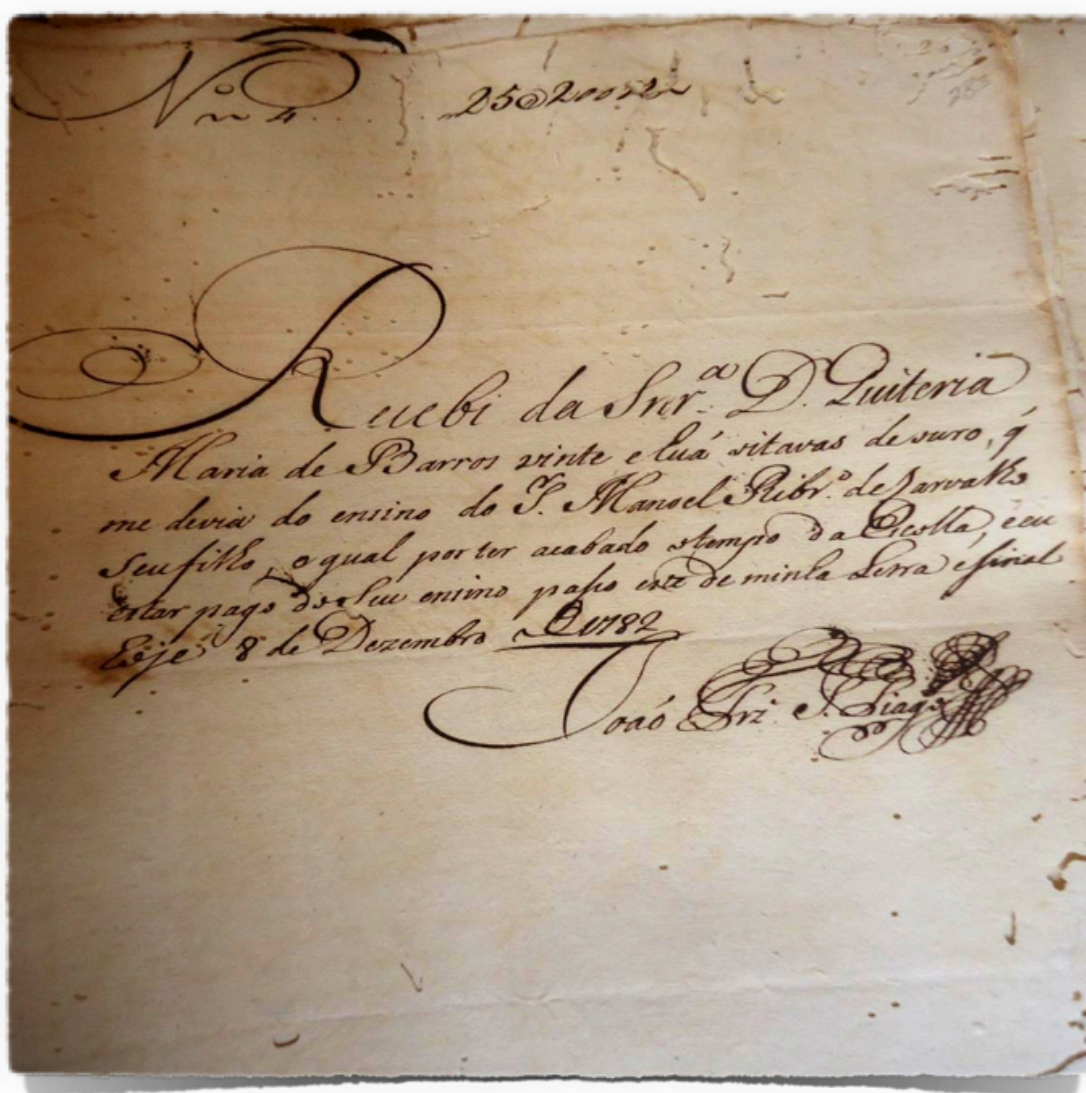 N.º 4 25@200
Recebi da Snr.ª D. Quiteria
Maria de Barros vinte e huá oitavas de ouro, q̃
me devia do ensino do S. Manoel Ribr.º de Carvalho
seu filho, o qual por ter acabado o tempo da Escolla, e eu
estar pago do seu ensino paso este de minha Letra e sinal
hoje 8 de Dezembro De 1782
Joaó Frz' S. Tiago